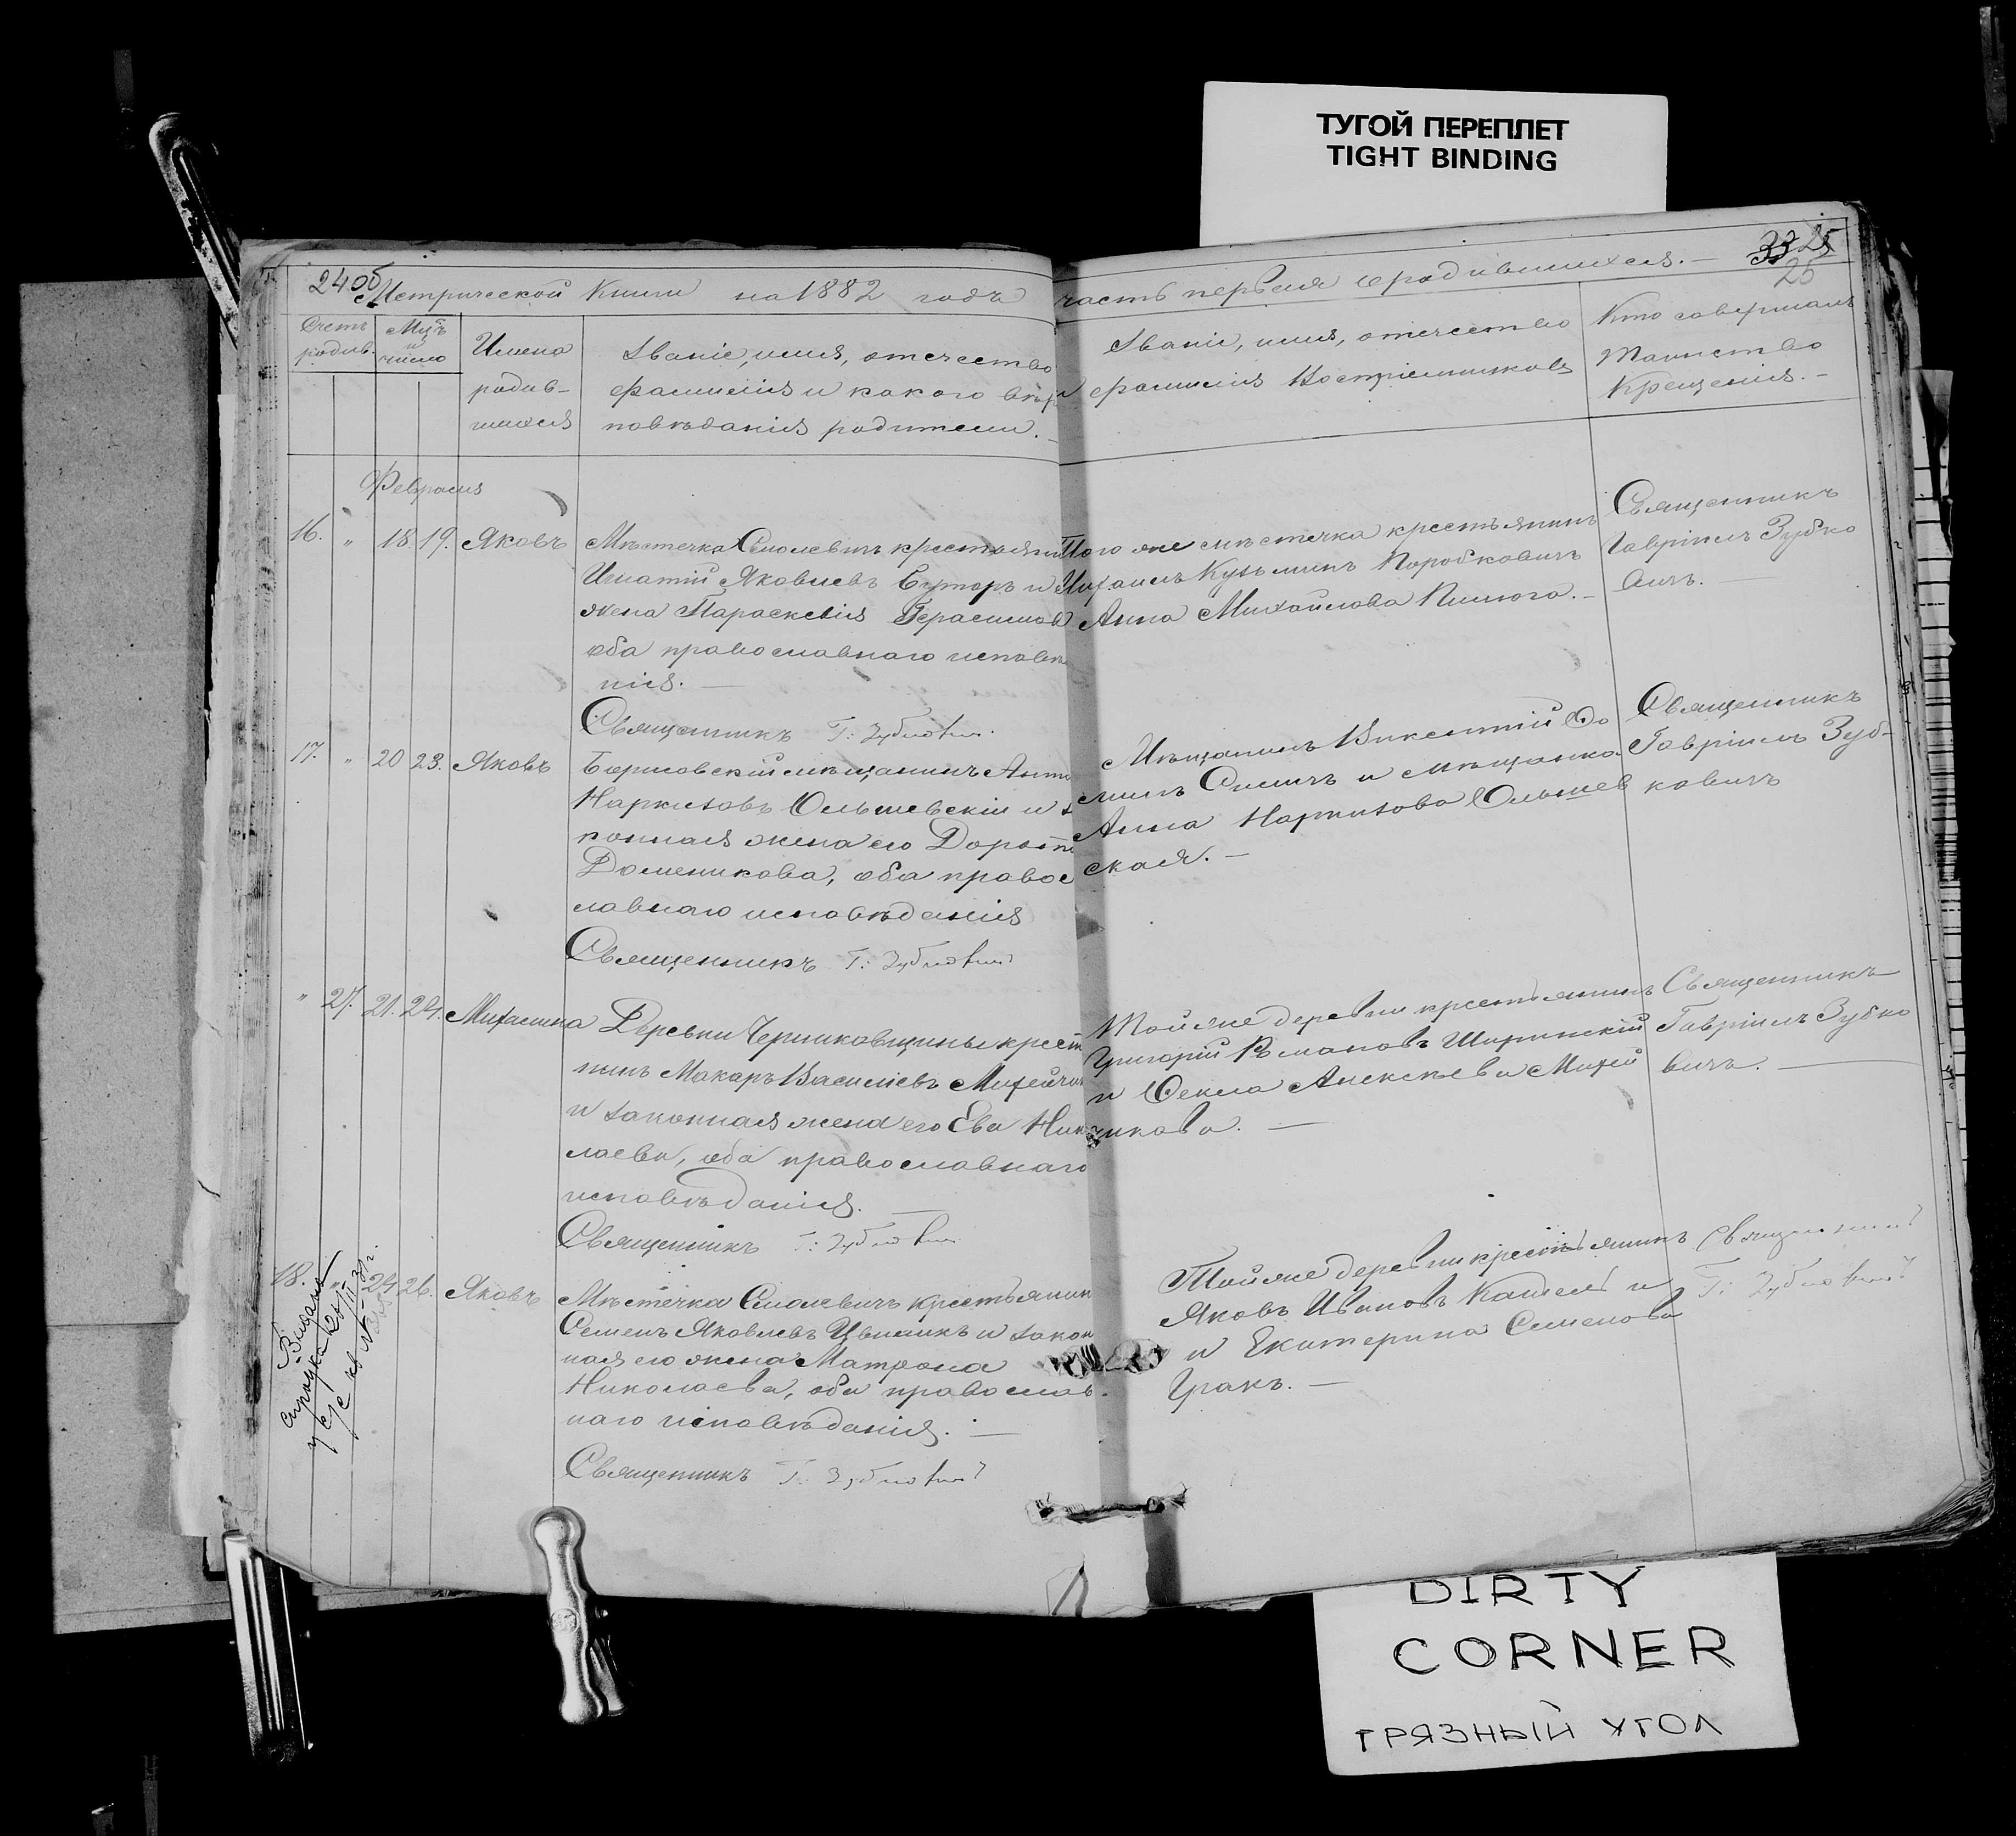 ТУГОЙ ПЕРЕПЛЕТ
TIGHT BINDING
24об
Метрической Книги на 1882 годъ
часть первая о родившихся. —
33 25
25
Счетъ родив.
Мцъ и число
Имена
родив-
шихся
Званіе, имя, отчество
фамилія и какого вѣр
повѣданія родители. —
Званіе, имя, отчество
и фамилія Воспріемниковъ
Кто совершалъ
Таинство
Крещенія. —
Февраля
16. " 18. 19. Яковъ
Мѣстечка Смолевичъ крестьянин
Игнатій Яковлевъ Буторъ и
жена Параскевія Герасимов
оба православнаго исповѣ
нія. —
Священникъ Г: Зубковичъ
Того же мѣстечка крестьянинъ
Михаилъ Кузьминъ Поробковичъ
Анна Михайлова Пилюга. —
Священникъ
Гавріилъ Зубко
вичъ.
17. " 20 23. Яковъ
Борисовскій мѣщанинъ Анто
Наркизовъ Ольшевскій и з
конная жена его Доротѣ
Доменикова, оба правос
лавнаго исповѣданія
Священникъ Г: Зубковичъ
Мѣщанинъ Викентій
Силичъ и мѣщанка
Анна Наркизова Ольшев
ская. —
Священникъ
Гавріилъ Зуб-
ковичъ
" 27. 21. 24. Михалина
Деревни Черниковщины крест
нинъ Макаръ Василіевъ Михейчи
и законная жена его Ева Ник
лаева, оба православнаго
исповѣданія. —
Священникъ Г: Зубковичъ
Той же деревни крестьянинъ
Григорій Романовъ Ширинскій
и Ѳекла Алексѣева Михей
чикова. —
Священникъ
Гавріилъ Зубко
вичъ. —
18. " 24 26. Яковъ
Выдана
справка 28/II 31 г.
Мѣстечка Смолевичъ крестьянин
Семенъ Яковлевъ Цвиликъ и закон
ная его жена Матрона
Николаева, оба православ-
наго исповѣданія. —
Священникъ Г: Зубковичъ
Той же деревни крестьянинъ
Яковъ Ивановъ Кашель и
и Екатерина Семенова
Гракъ. —
Священникъ
Г: Зубковичъ
DIRTY
CORNER
ГРЯЗНЫЙ УГОЛ